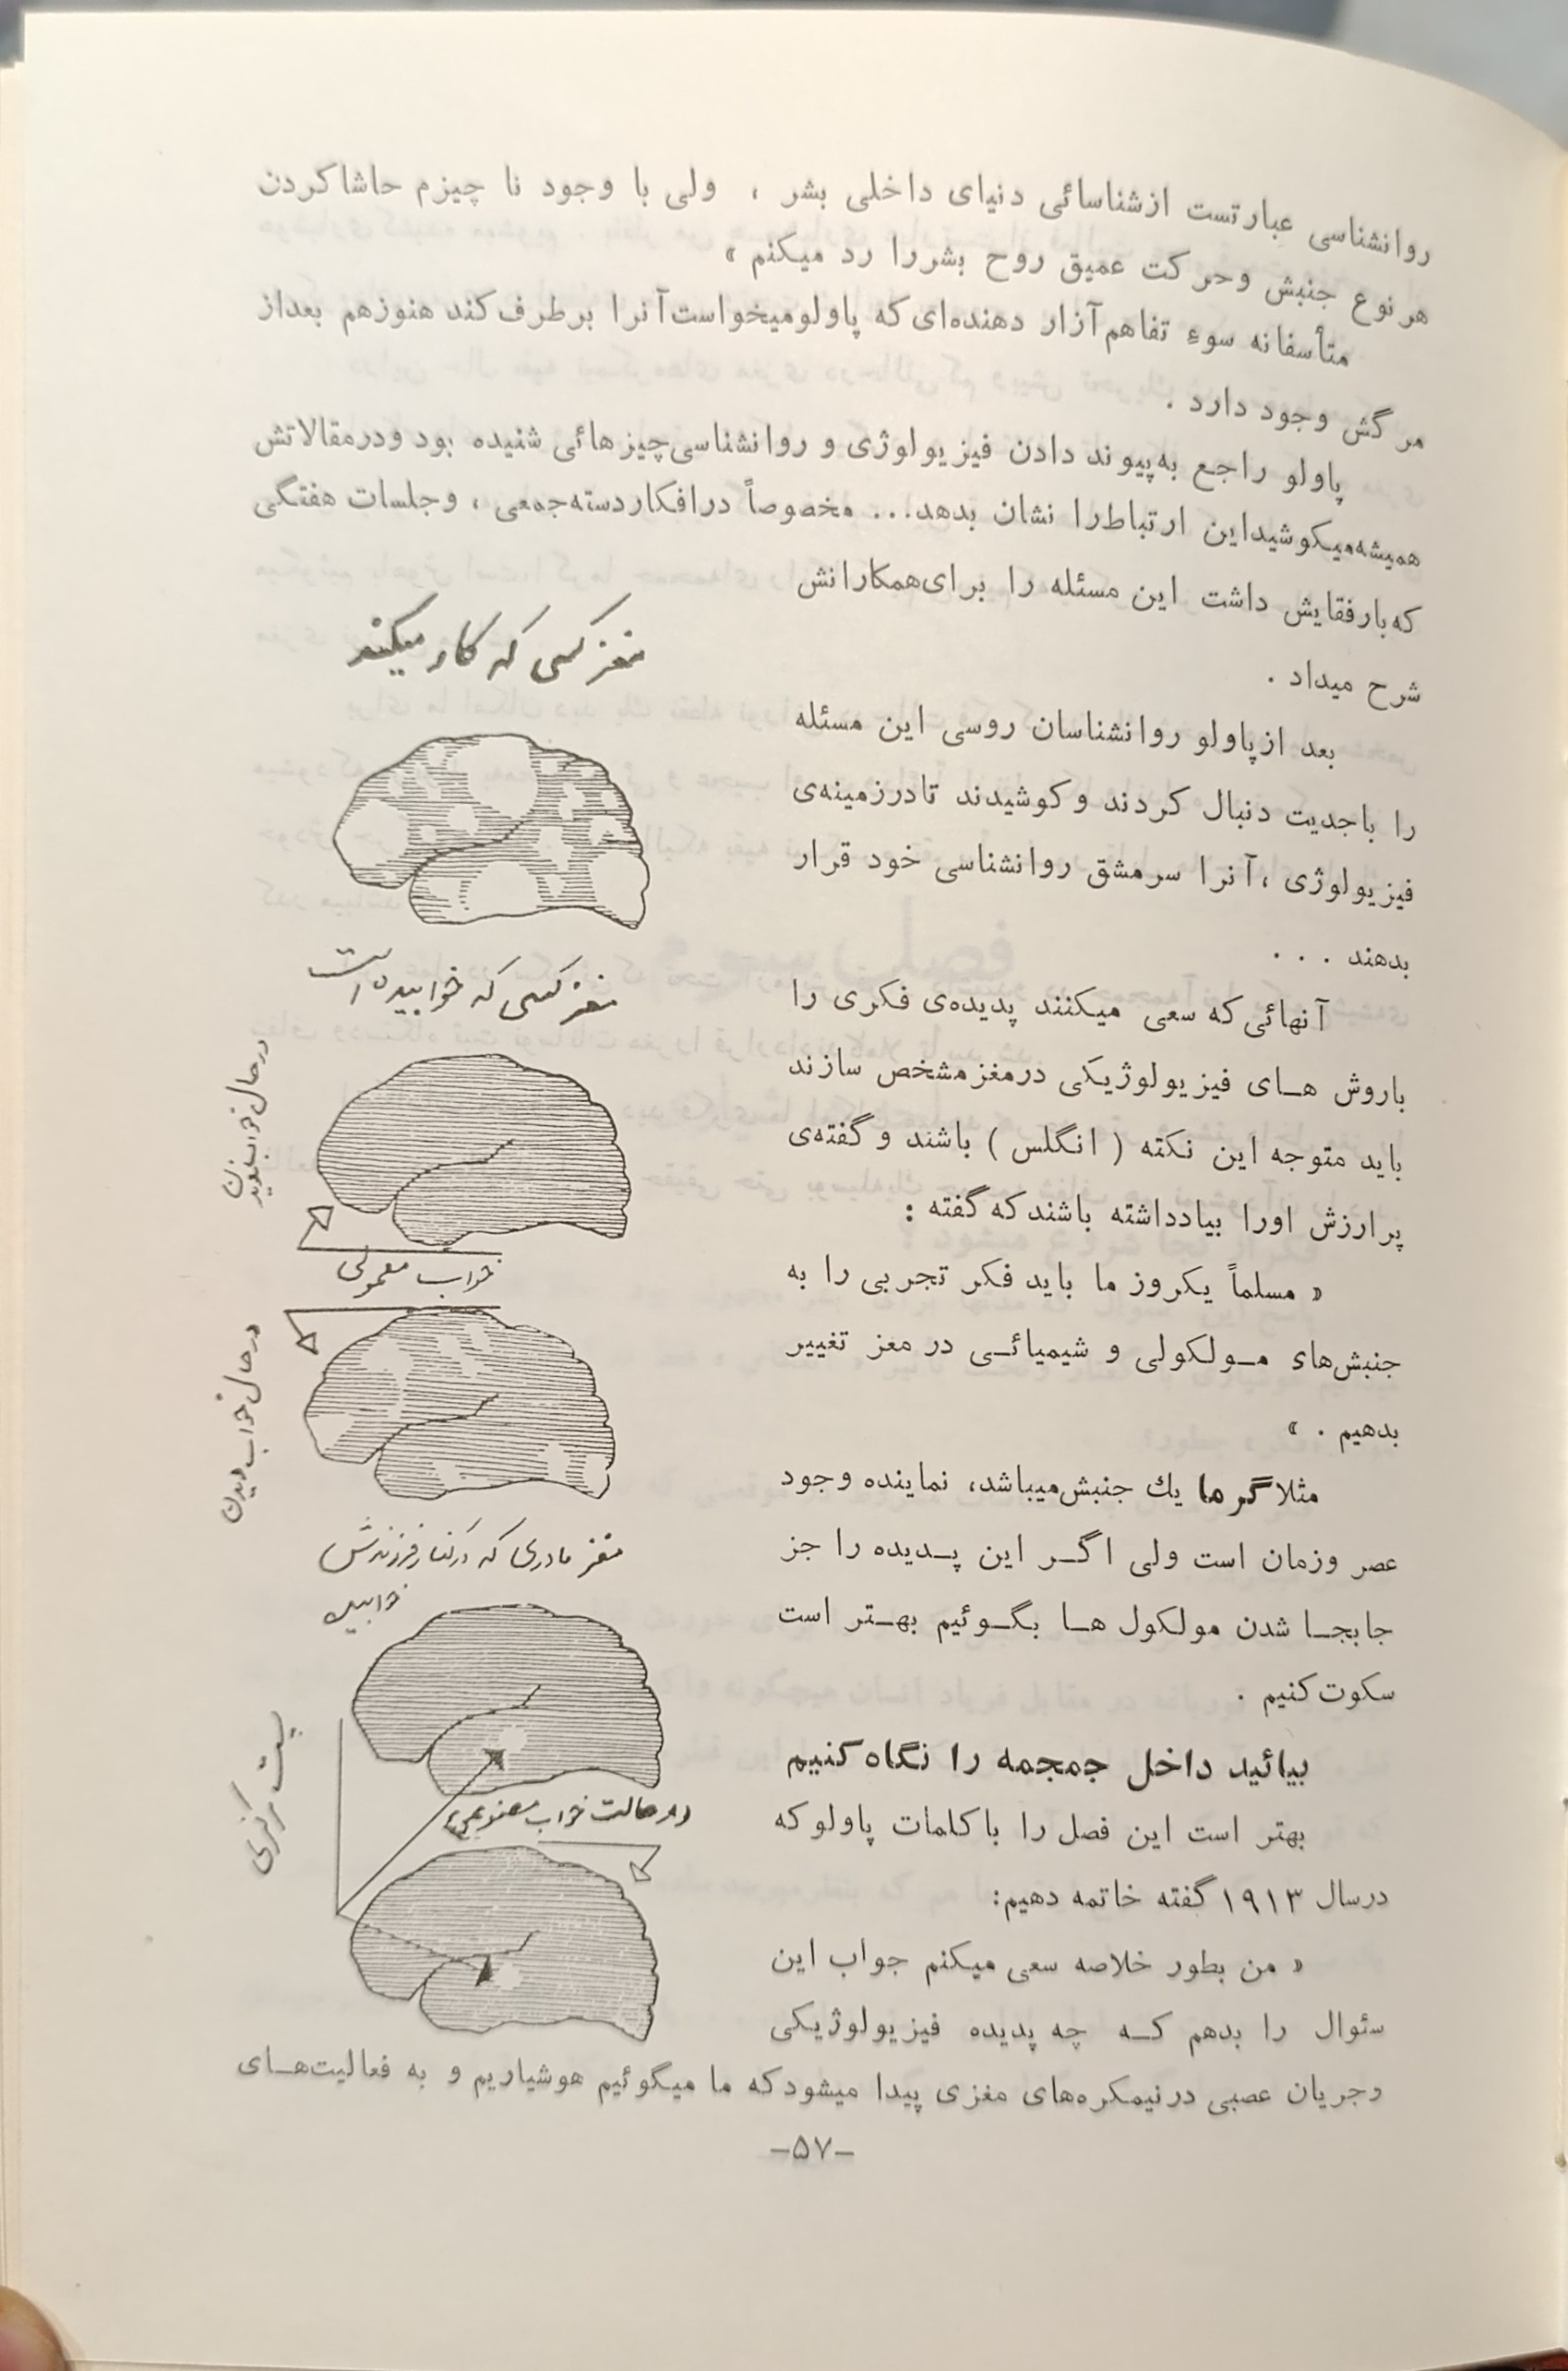 روانشناسی عبارتست ازشناسائی دنیای داخلی بشر ، ولی با وجود نا چیزم حاشاکردن
هر نوع جنبش وحرکت عمیق روح بشررا رد میکنم »
متأسفانه سوء تفاهم آزار دهنده‌ای که پاولومیخواست آنرا برطرف کند هنوزهم بعداز
مرگش وجود دارد .
پاولو راجع به‌پیوند دادن فیزیولوژی و روانشناسی چیزهائی شنیده بود ودرمقالاتش
همیشه‌میکوشیداین ارتباط‌را نشان بدهد... مخصوصاً درافکاردسته‌جمعی ، وجلسات هفتگی
که بارفقایش داشت این مسئله را برای‌همکارانش
شرح میداد .
بعد ازپاولو روانشناسان روسی این مسئله
را باجدیت دنبال کردند وکوشیدند تادرزمینه‌ی
فیزیولوژی ، آنرا سرمشق روانشناسی خود قرار
بدهند . . .
آنهائی که سعی میکنند پدیده‌ی فکری را
باروش هـای فیزیولوژیکی درمغزمشخص سازند
باید متوجه این نکته ( انگلس ) باشند و گفته‌ی
پرارزش اورا بیادداشته باشندکه گفته :
« مسلماً یکروز ما باید فکر تجربی را به
جنبش‌های مـولکولی و شیمیائـی در مغز تغییر
بدهیم . »
مثلا گرما یك جنبش‌میباشد، نماینده وجود
عصر وزمان است ولی اگـر این پـدیده را جز
جابجـا شدن مولکول هـا بگـوئیم بهـتر است
سکوت کنیم .
بیائید داخل جمجمه را نگاه کنیم
بهتر است این فصل را باکلمات پاولو که
درسال ۱۹۱۳ گفته خاتمه دهیم:
« من بطور خلاصه سعی میکنم جواب این
سئوال را بدهم کـه چه پدیده فیزیولوژیکی
وجریان عصبی درنیمکره‌های مغزی پیدا میشودکه ما میگوئیم هوشیاریم و به فعالیت‌هـای
مغز کسی که کار میکند
مغز کسی که خوابیده است
در حال خواب ندیدن
خواب معمولی
در حال خواب دیدن
مغز مادری که در کنار فرزندش
خوابیده
در حالت خواب مصنوعی
پست مرکزی
-۵۷-